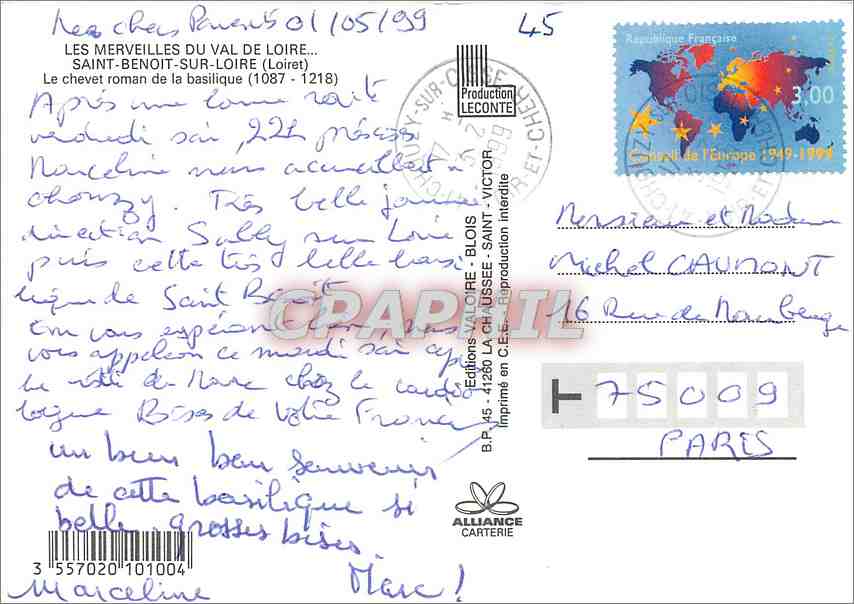 Mes chers Parents 01/05/99
45
LES MERVEILLES DU VAL DE LOIRE...
SAINT-BENOIT-SUR-LOIRE (Loiret)
Le chevet roman de la basilique (1087 - 1218)
Après une bonne route
vendredi soir, 22h précises
Marceline nous accueillait à
chouzy. Très belle journée
direction Sully sur Loire
puis cette très belle basi
lique de Saint Benoit
vous espérant bien, nous
vous appelon ce mardi soir après
le de Marc chez le cardio
logue Bises de Votre France
un bien bon souvenir
de cette basilique si
belle. grosses bises.
Marceline
Marc !
3 557020 101004
Production
LECONTE
Editions VALOIRE - BLOIS
B.P. 45 - 41260 LA CHAUSSEE - SAINT - VICTOR
Imprimé en C.E.E. - Reproduction interdite
ALLIANCE
CARTERIE
République Française
3,00
Conseil de l'Europe 1949-1999
Monsieur et Madame
Michel CAUMONT
16 Rue de Maubeuge
T 75009
PARIS
CPAPHIL